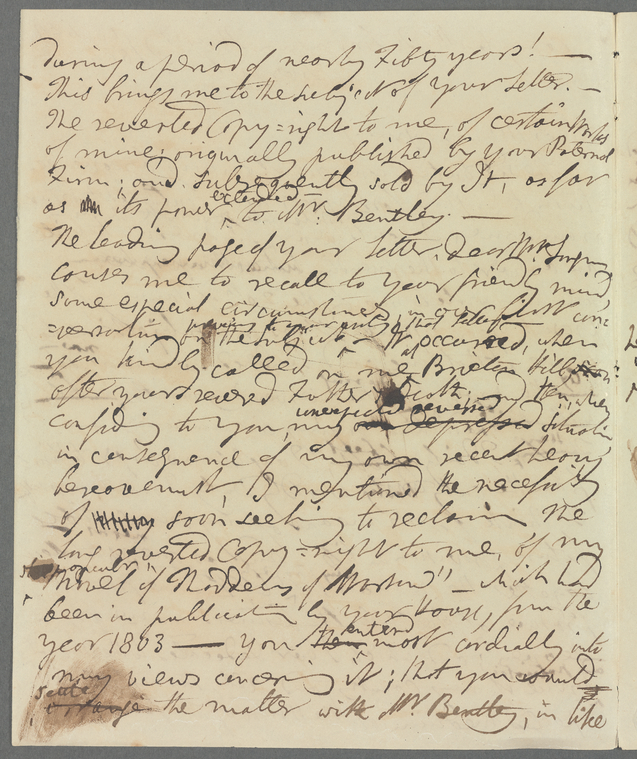 during a period of nearly Fifty years! —
This brings me to the subject of your Letter. —
The reverted Copy=right to me, of certain Works
of mine; originally published by your Paternal
Firm, and subsequently sold by It, as far
as its power extended to Mr. Bentley. —
The leading page of your letter, dear Mr.
causes me to recall to your friendly mind
some especial circumstances, in our first con=
=versation on the subject
you kindly called on me at Brixton Hill soon
after your revered Father's death, and then, when
confiding to you, my unexpected reverse situation
in consequence of my own recent heavy
bereavement, I mentioned the necessity
of soon seeking to reclaim the
long reverted Copy=right to me, of my
Novel of "Thaddeus of Warsaw" — which had
been in publication by your House, from the
year 1803 — you entered most cordially into
my views concerning it; that you would
settle the matter with Mr. Bentley, in like